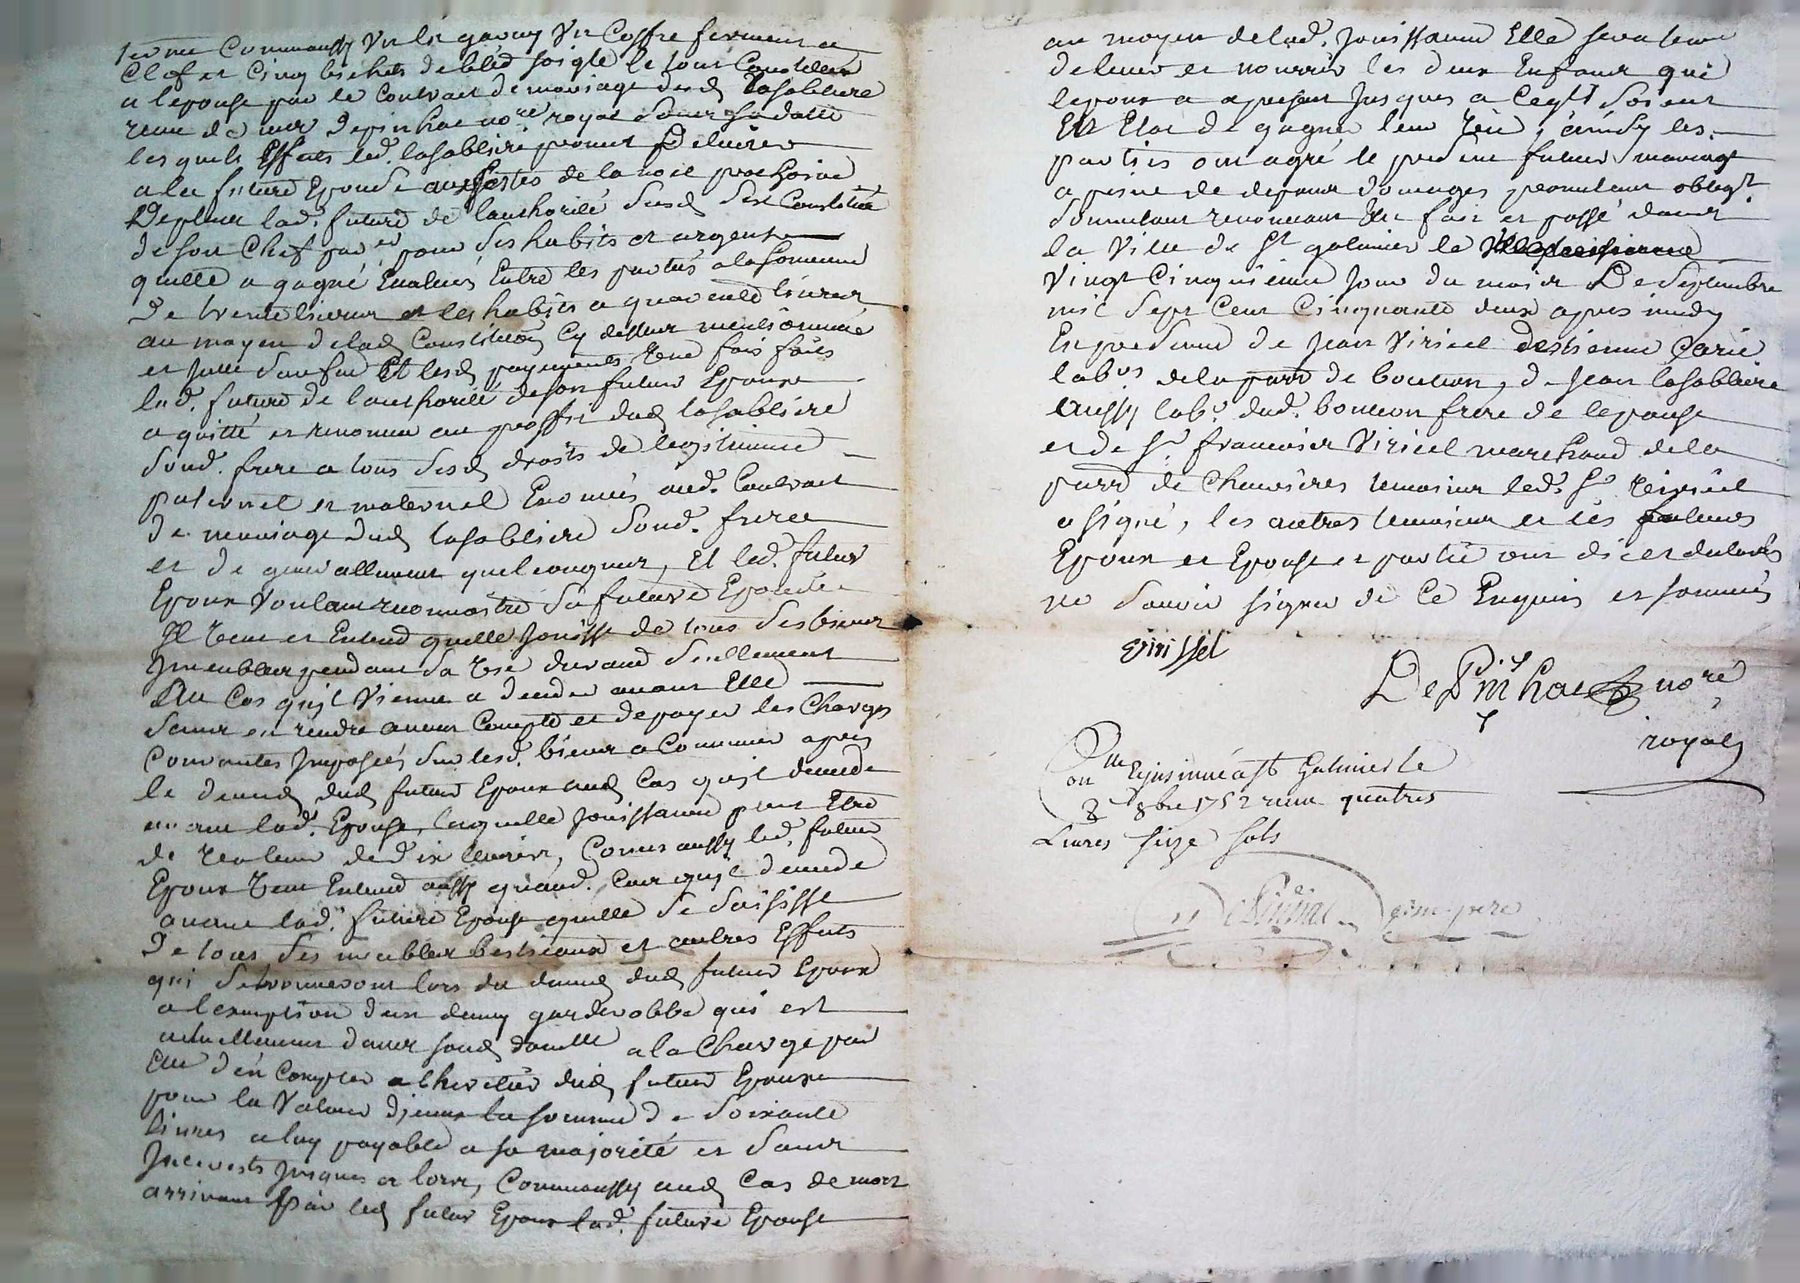 terme Commaussy Un lit garny Un Coffre fermant a
Clef et Cinq bichets de bled soigle le tout Constitué
a lepouse par le Contrait de mariage dud lasabliere
receu de me Depinhac nore royal Sans sa datte
lesquels Effaits led. lasabliere promet Delivrer
a la future Epouse aux festes de la noel prochaine
Deplus lad. future de lauthorité Susd Sest Constitué
de son Chef par et pour Ses habits et argent
quelle a gagné Evalués Entre les partiés a la somme
De trente livres et les habits a quarente livres
au moyen de lad Constitution Cy dessus mentionnée
et jceux Sanfan Et lesd payements Une fois faits
lad. future de lauthorité de son futur Epoux
a quitté et renoncé au proffit dud lasabliere
Sond. frere a tous Sesd droits de legitimme
paternel et maternel Enoncés aud. Contrait
de mariage dud lasabliere Sond. frere
et de generallement quelconques, Et led. futur
Epoux Voulant reconnoistre Sa future Epouse
Il veut et Entend quelle jouisse de tous Ses biens
jmeubles pendant Sa vie durand Seullement
Au Cas quil Vienne a deceder avant Elle
Sans en rendre aucun Compte et de payer les Charges
Courantes jmposeés Sur lesd. biens a Commencer apres
le deceds dud futur Epoux aud Cas quil decede
avant lad. Epouse, laquelle jouissance peut Etre
de valeur de dix livres, Comm aussy led. futur
Epoux veut Entend aussy quaud. Cas quil decede
avant lad. future Epouse quelle Se Saisisse
De tous Ses meubles bestiaux et autres Effaits
qui Se trouveront lors du deceds dud futur Epoux
a lexemption dun demy garderobbe qui est
actuellement dans sond domille a la Charge par
Elle d'en Compter a lheritier dud futur Epoux
pour la Valeur djceux la somme de Soixante
livres a luy payable a sa majorité et Sans
Jnterests jusques a lors, Commaussy aud Cas de mort
arrivant par led futur Epoux lad. future Epouse
au moyen de lad. jouissance Elle sera tenue
delever et nourrir les deux Enfans que
lepoux a apresent jusques a Ce quil Soient
En Etat de gagner leur vie, ainsy les
parties ont agré le present futur mariage
a peine de depens Domages promettant obligt
Soumettant renonceant Etc fait et passé dans
la Ville de St galmier le
Vingt Cinquieme jour du mois De Septembre
mil Sept Cent Cinquante deux apres midy
En presence de jean Viricel destienne Carie
labr. de la parr de bouteon, de jean lasabliere
aussy labr. dud. bouteon frere de lepouse
et de Sr. francoier Viricel marchand de la
parr de Chamieres temoins led. Sr. viricel
a signé, les autres temoins et les futurs
Epoux et Epouse et partie ont dit et declarés
ne Savoir signer de Ce Enquis et sommés
viricel
DePinhac nore
royal
Controllé Ejnsinué a St Galmier le
8 8bre 1752 receu quatres
Livres seize sols